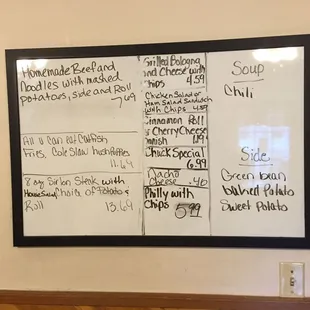 Homemade Beef and
Noodles with mashed
potatoes, side and Roll
7.69
All u can eat Catfish
Fries, Cole Slaw hush Puppies
11.69
8 oz Sirloin Steak with
House Salad Choice of Potato &
Roll 13.69
Grilled Bologna
and Cheese with
Chips 4.59
Chicken Salad or
Ham Salad Sandwich
with Chips
Cinnamon Roll
or Cherry Cheese
Danish 1.79
Chuck Special
6.99
Nacho
Cheese .40
Philly with
Chips 5.99
Soup
Chili
Side
Green bean
baked Potato
Sweet Potato